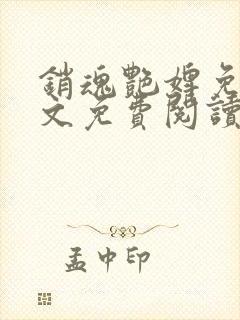 銷魂艷婢免
文免費閱讀
孟中印